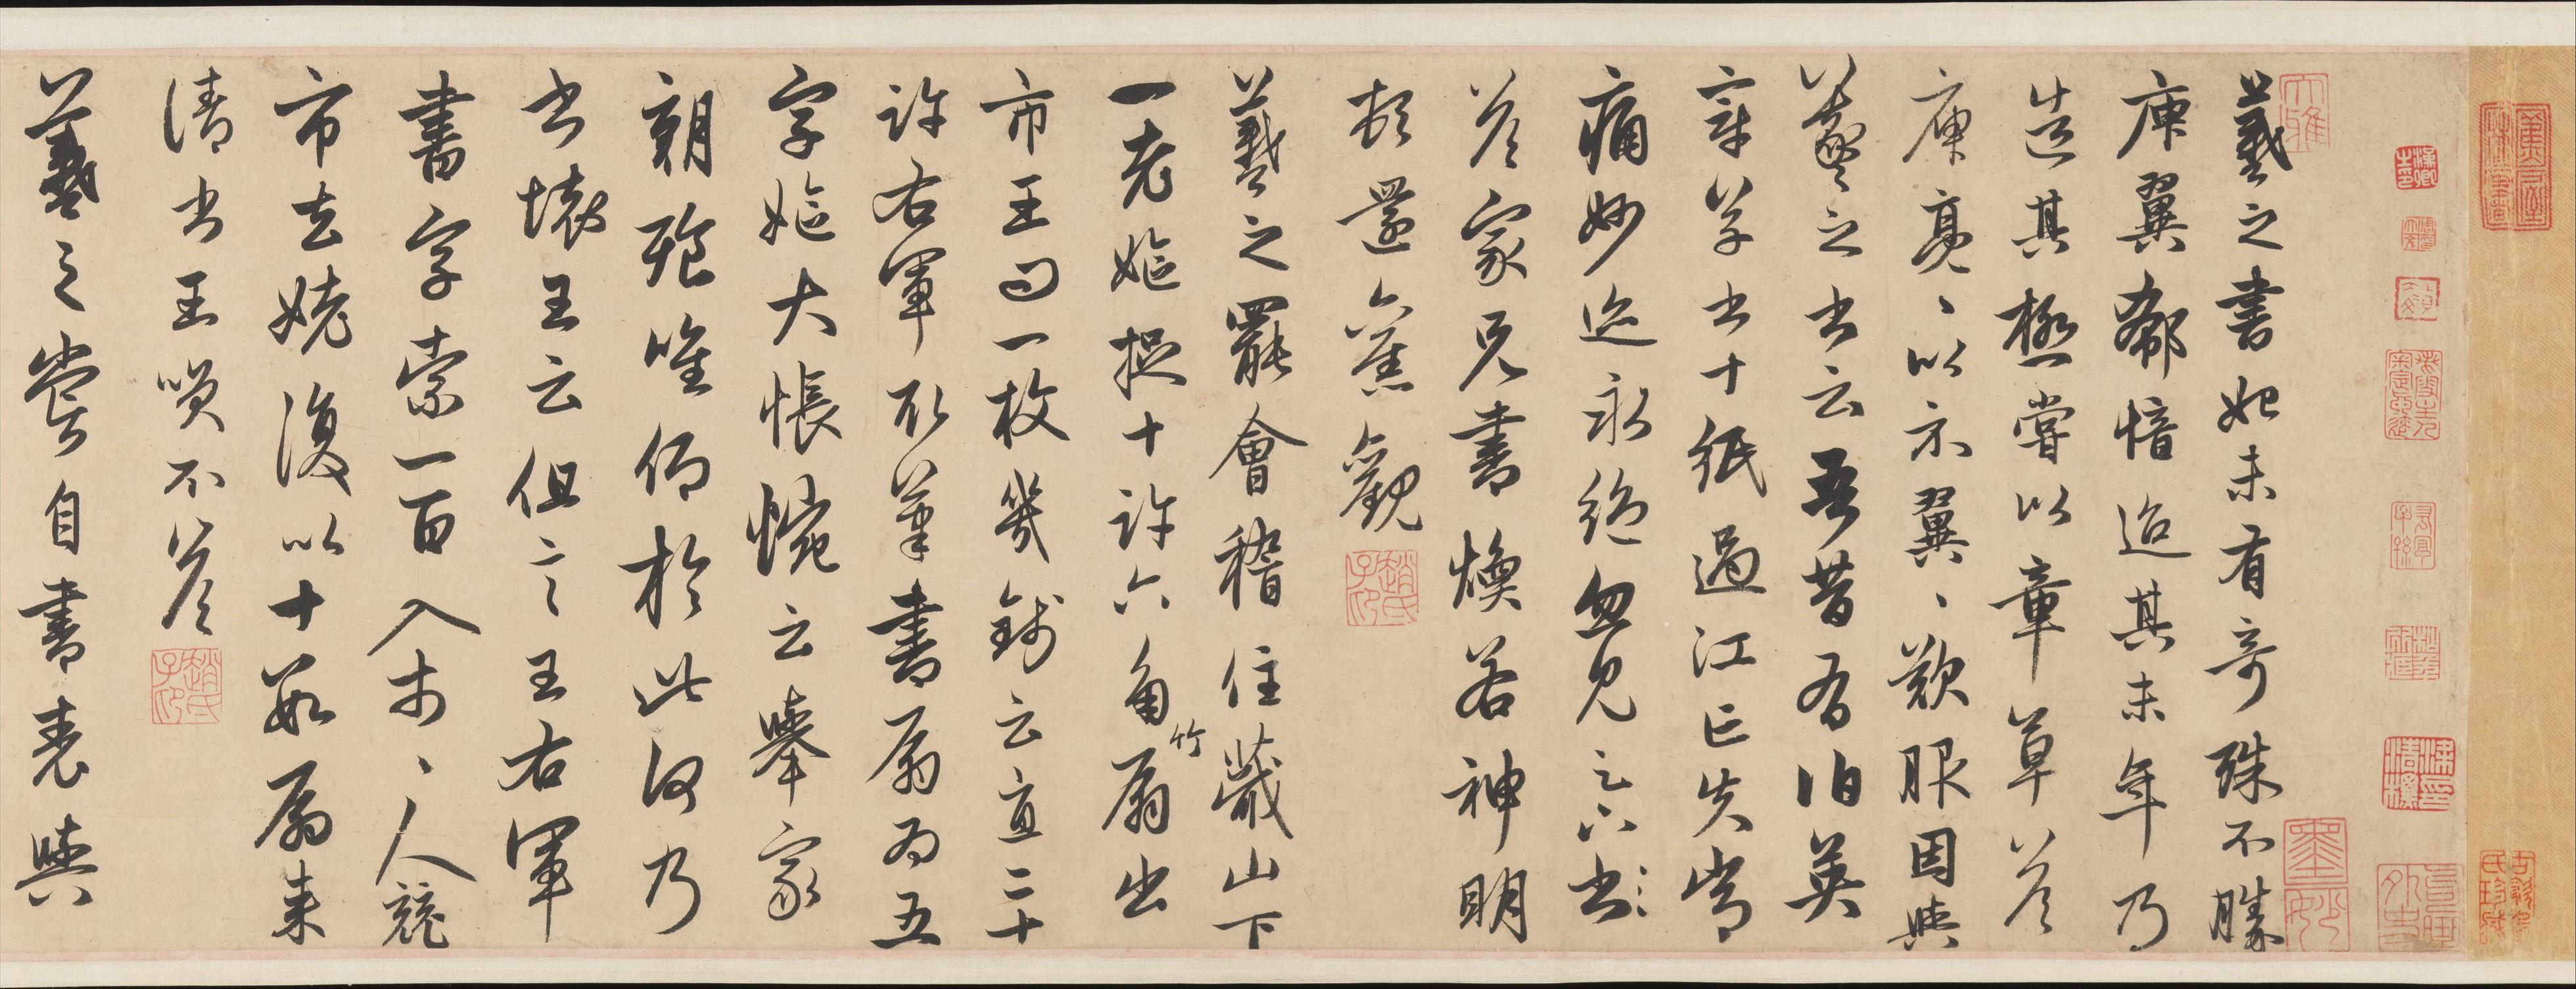 羲之書始未有奇殊不勝
庾翼郗愔迨其末年乃
造其極嘗以章草答
庾亮〻以示翼〻歎服因與
羲之書云吾昔有伯英
章草書十紙過江亡失常
痛妙迹永絕忽見足下書
答家兄書煥若神明
頓還舊觀
趙氏子昂
羲之罷會稽住蕺山下
一老嫗捉十許六角竹扇出
市王問一枚幾錢云直二十
許右軍取筆書扇為五
字嫗大悵惋云舉家
朝飡唯仰於此何乃
書壞王云但言王右軍
書字索一百入市〻人競
市去姥復以十數扇来
請書王笑不答
趙氏子昂
羲之嘗自書表與